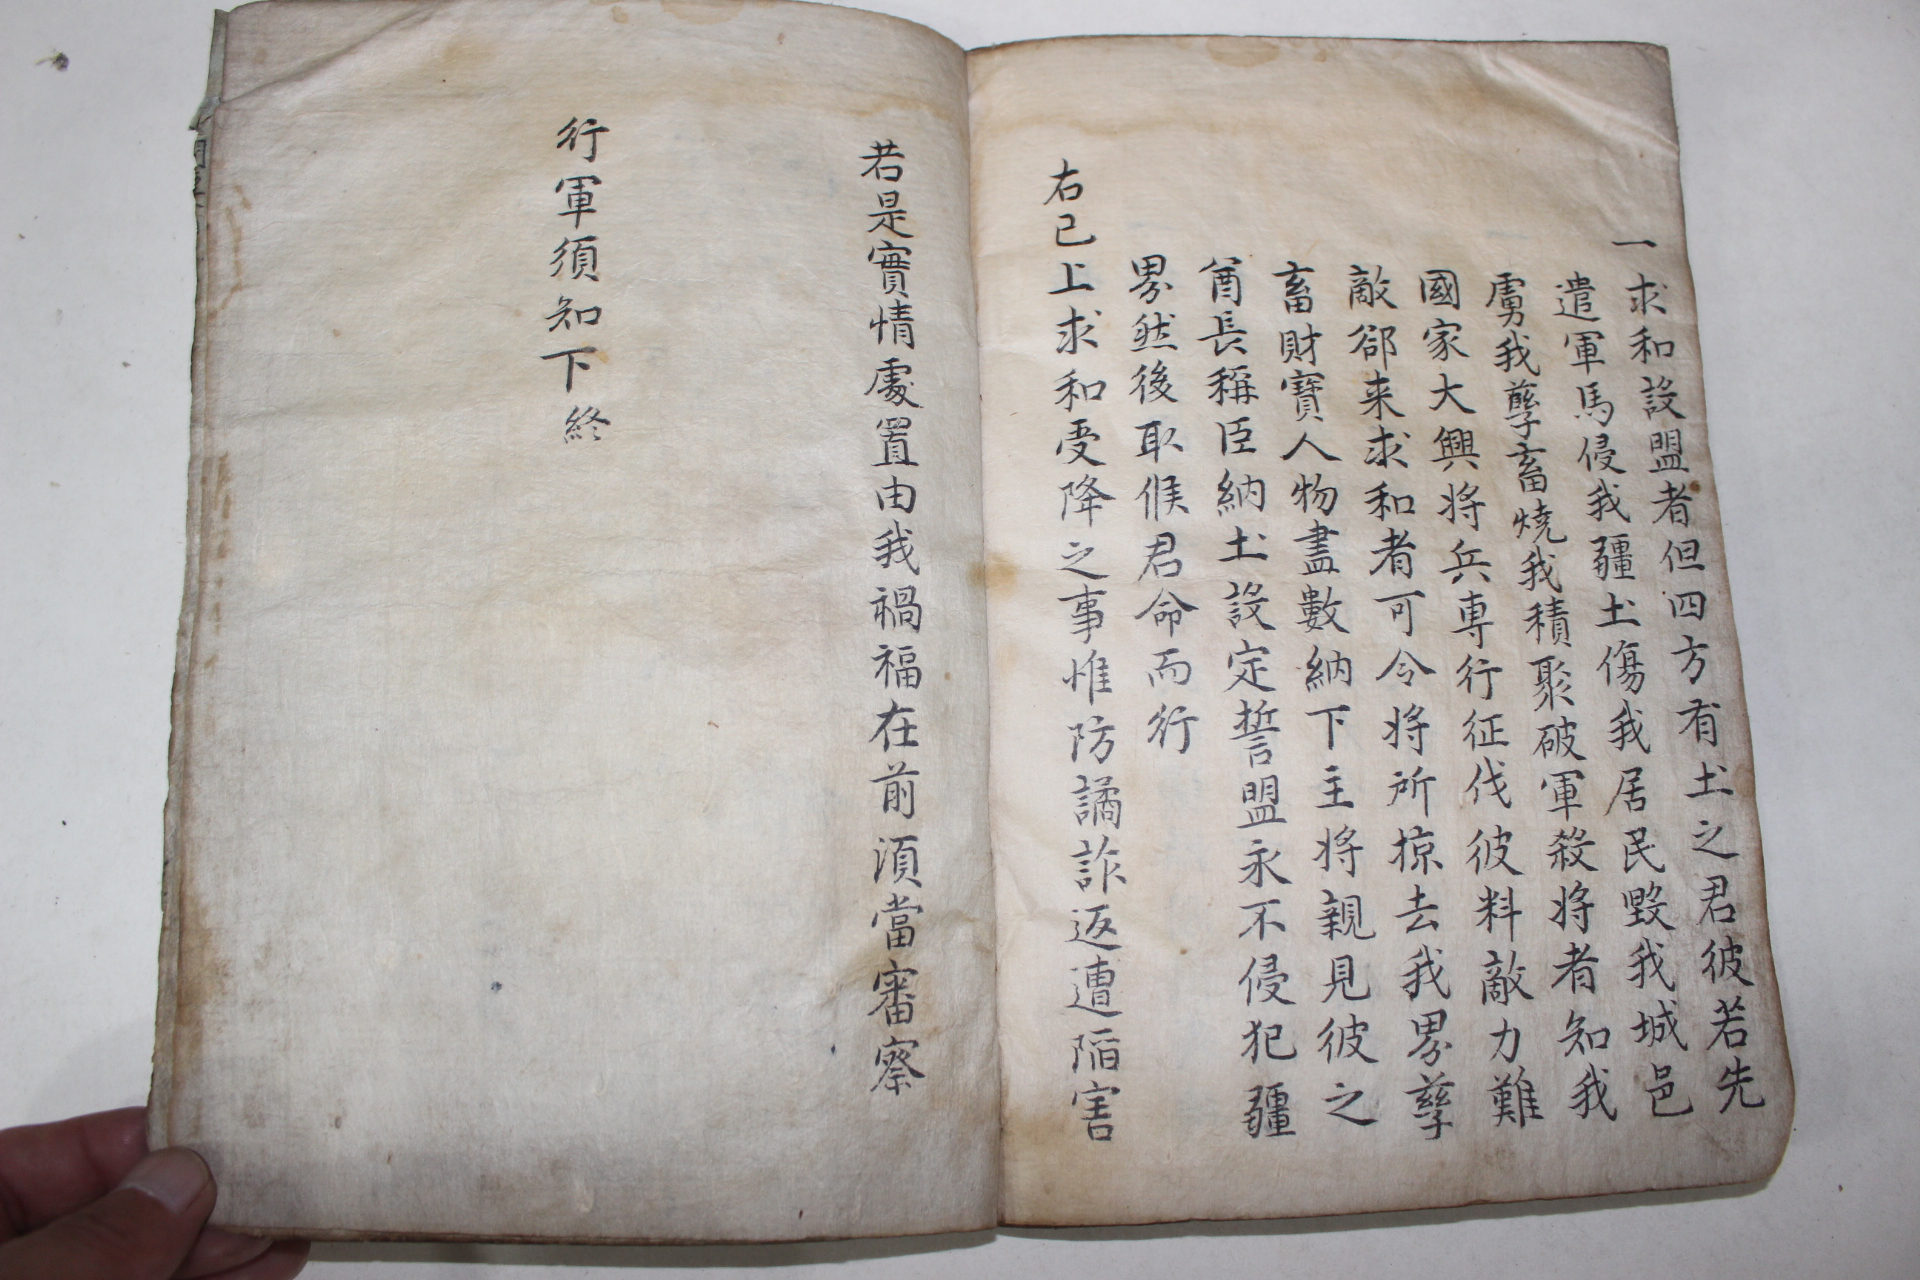 一求和設盟者但四方有土之君彼若先
遣軍馬侵我疆土傷我居民毀我城邑
虜我孳畜燒我積聚破軍殺將者知我
國家大興將兵專行征伐彼料敵力難
敵郤来求和者可令將所掠去我界孳
畜財寶人物盡數納下主將親見彼之
酋長稱臣納土設定誓盟永不侵犯疆
界然後取候君命而行
右已上求和受降之事惟防譎詐返遭陷害
若是實情處置由我禍福在前須當審察
行軍須知下終